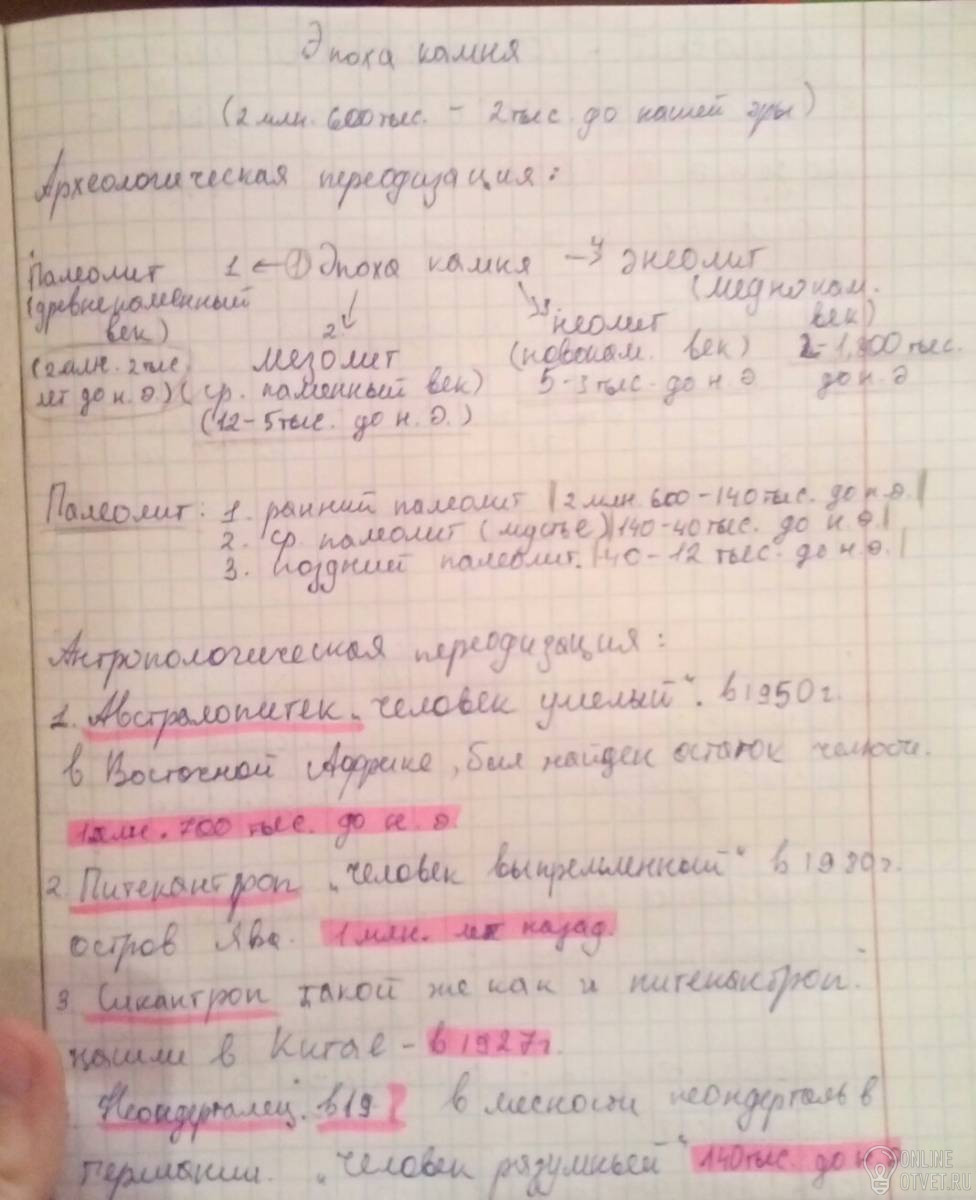 Эпоха камня
(2 млн. 600 тыс. - 2 тыс. до нашей эры)
Археологическая переодизация:
Палеолит 1 ← ① Эпоха камня → 4 энеолит
(древнекаменный век)
(2 млн. 2 тыс. лет до н.э.)
2 мезолит
(ср. каменный век)
(12-5 тыс. до н.э.)
3 неолит
(новокам. век)
5-3 тыс. до н.э
(меднокам. век)
2-1,800 тыс.
до н.э
Палеолит: 1. ранний палеолит |2 млн 600-140 тыс. до н.э.|
2. ср. палеолит (мустье) |140-40 тыс. до н.э.|
3. поздний палеолит. |40-12 тыс. до н.э.|
Антропологическая переодизация:
1. Австралопитек „человек умелый“. в 1950 г.
в Восточной Африке, был найден остаток челюсти.
1 млн. 700 тыс. до н.э.
2. Питекантроп „человек выпрямленный“ в г.
остров Ява. 1 млн. лет назад.
3. Сикантроп такой же как и питекантроп.
нашли в Китае - в 1927 г.
Неондерталец. в 19 в месности неондерталь в
германии. „человек разумный“ 140 тыс. до н.э
ONLINE
OTVET.RU